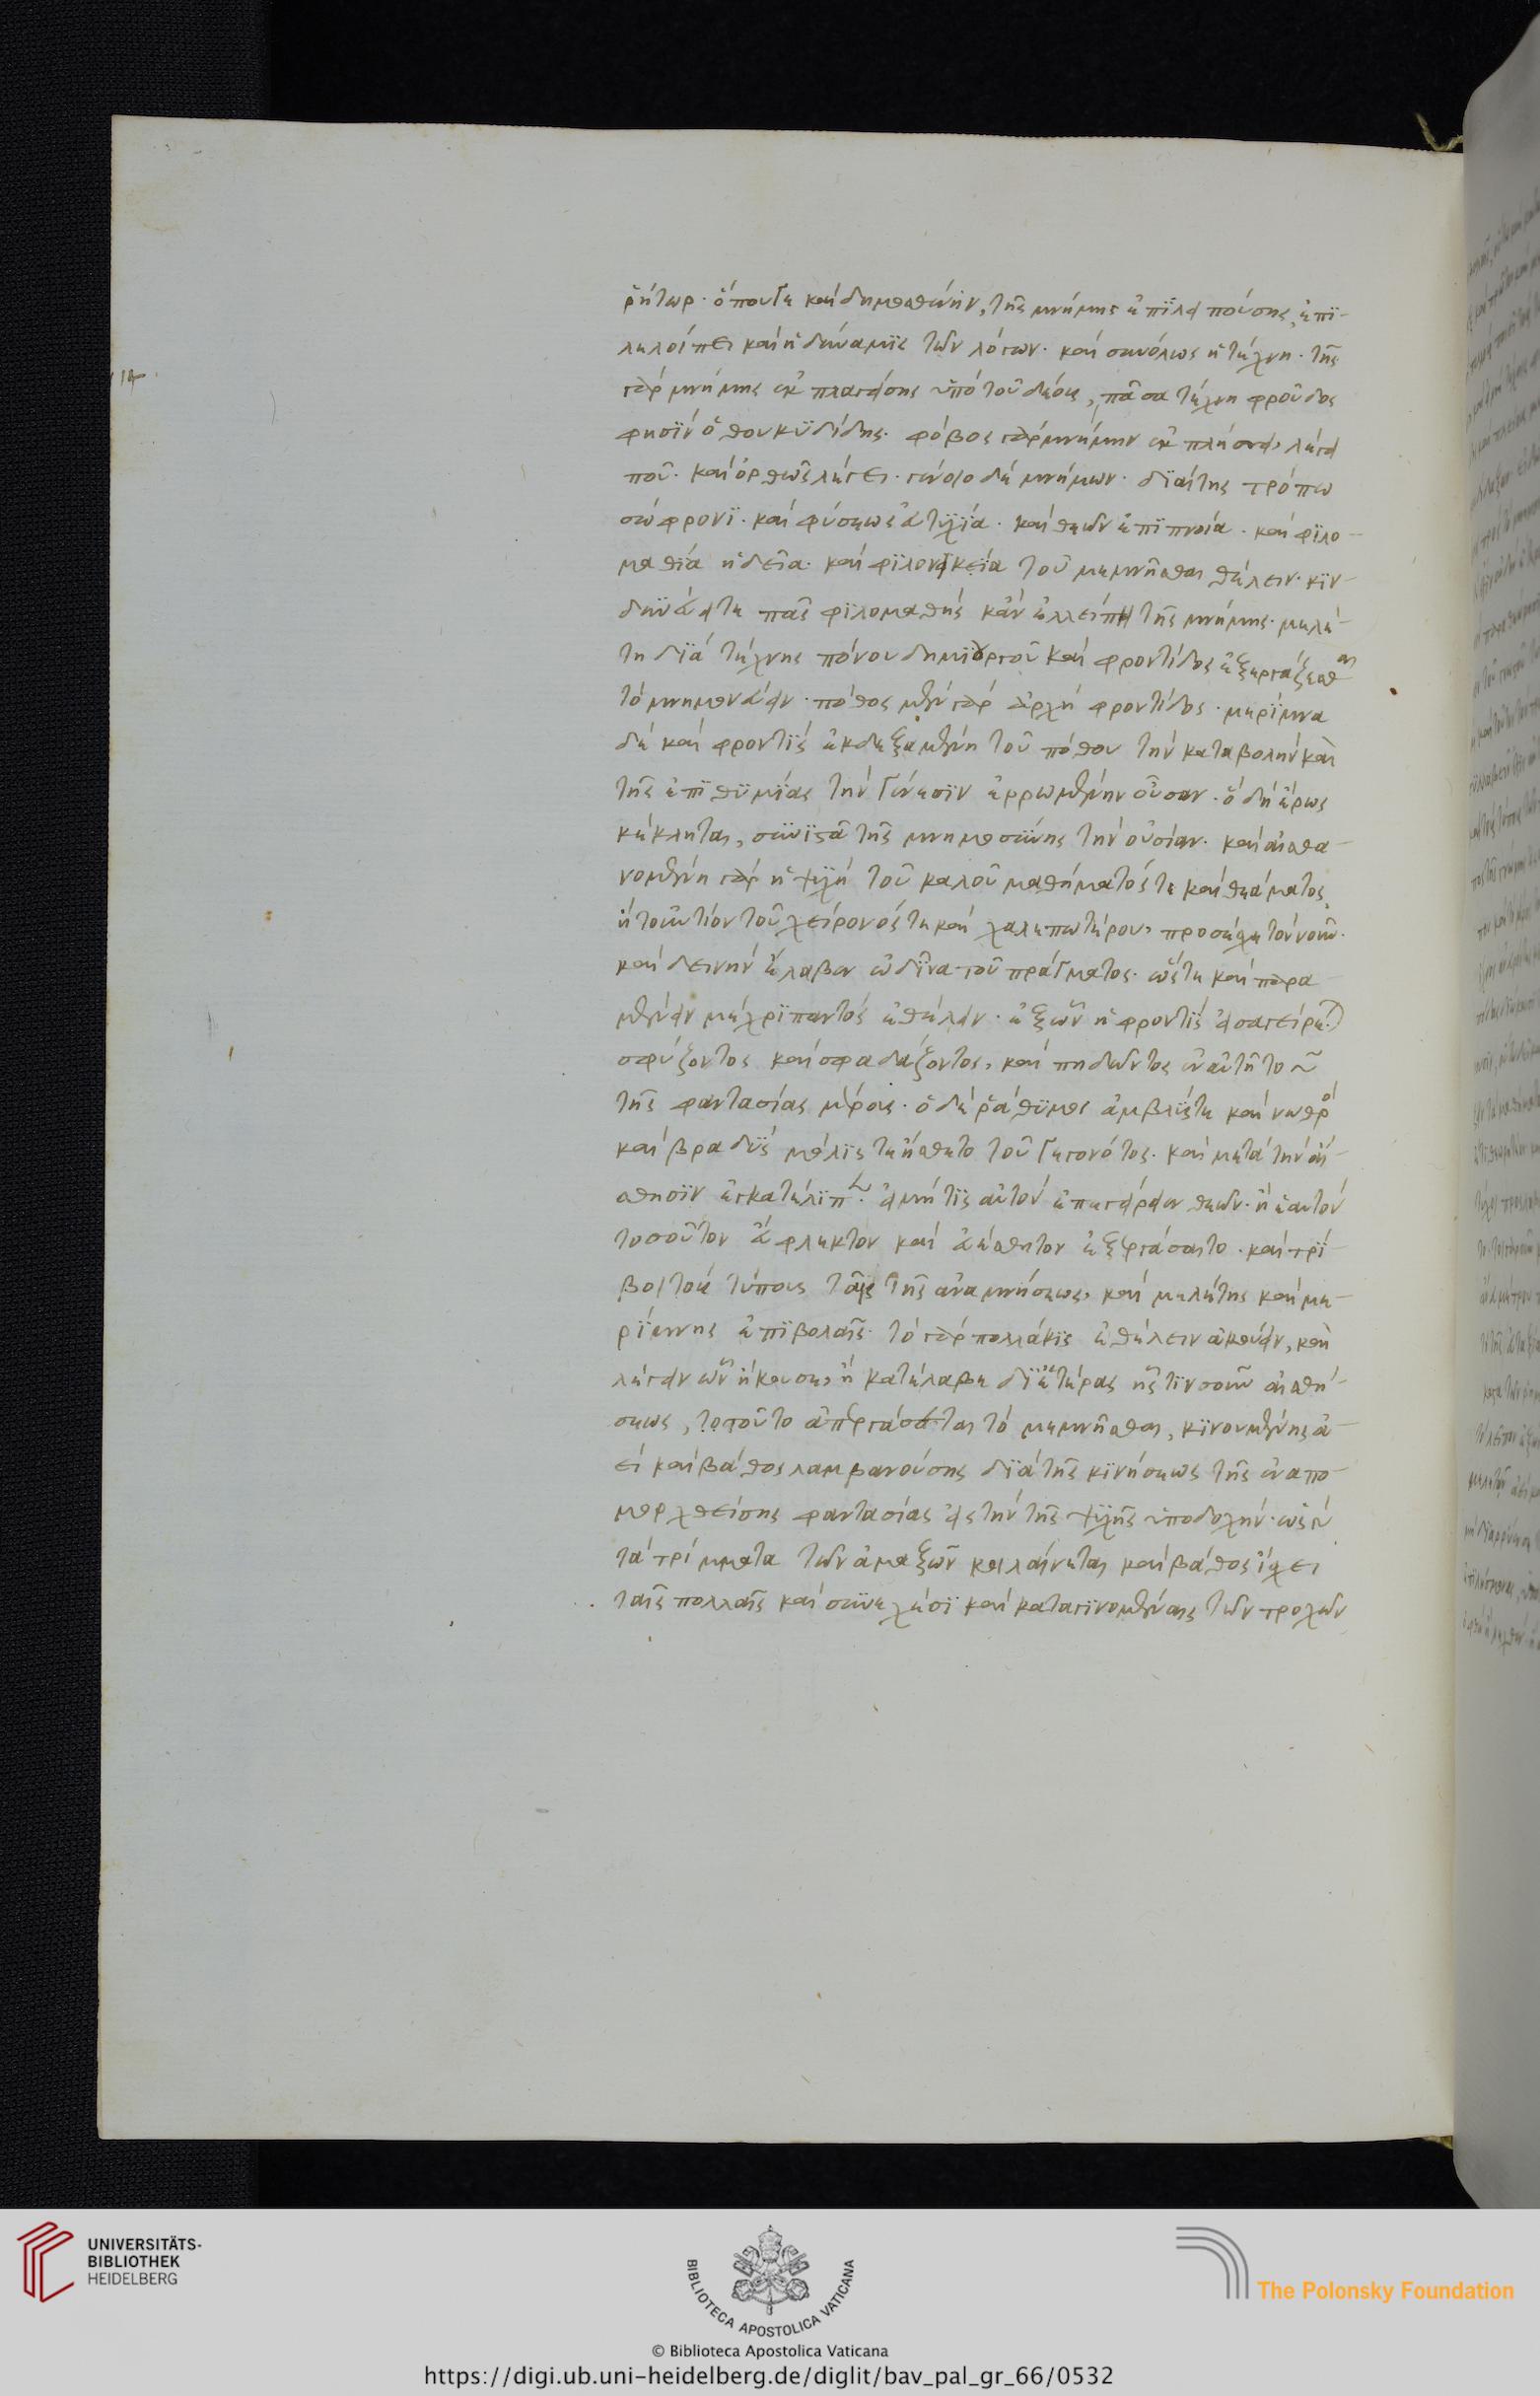 ῥήτωρ· ὅπου γε καὶ δημοσθένην, τῆς μνήμης ἐπιλειπούσης, ἐπι-
λελοίπει καὶ ἡ δύναμις τῶν λόγων· καὶ συνόλως ἡ τέχνη· τῆς
γὰρ μνήμης ἐκπλαγείσης ὑπὸ τοῦ δέους, πᾶσα τέχνη φροῦδος
φησὶν ὁ θουκυδίδης· φόβος γὰρ μνήμην ἐκπλήσσει, λέγει
που· καὶ ὀρθῶς λέγει· γένοιο δὲ μνήμων· διαίτης τρόπω
σώφρονι· καὶ φύσεως εὐτυχία· καὶ θεῶν ἐπιπνοία· καὶ φιλο-
μαθία ἡδεῖα· καὶ φιλονεικεία τοῦ μεμνῆσθαι θέλειν· κιν-
δυνεύει τε πᾶς φιλομαθὴς κἂν ἐλλείπῃ τῆς μνήμης· μελέ-
τη διὰ τέχνης πόνου δημιουργοῦ καὶ φροντίδος ἐξεργάζεσθαι
τὸ μνημονεύειν· πόθος μὲν γὰρ ἀρχὴ φροντίδος· μέριμνα
δὲ καὶ φροντὶς ἐκδεξαμένη τοῦ πόθου τὴν καταβολὴν καὶ
τῆς ἐπιθυμίας τὴν γένεσιν ἐρρωμένην οὖσαν· ὃ δὴ ἔρως
κέκληται, συνιστᾶ τῆς μνημοσύνης τὴν οὐσίαν· καὶ αἰσθα-
νομένη γὰρ ἡ ψυχὴ τοῦ καλοῦ μαθήματός τε καὶ θεάματος,
ἢ τοὐναντίον τοῦ χείρονός τε καὶ χαλεπωτέρου, προσέχει τὸν νοῦν·
καὶ δεινὴν ἔλαβεν ὠδῖνα τοῦ πράγματος· ὥστε καὶ παρα-
μένειν μέχρι παντὸς ἐθέλειν· ἐξ ὧν ἡ φροντὶς εἰσαγείρεται
σφύζοντος καὶ σφαδάζοντος, καὶ πηδῶντος ἐν αὐτῆ το ~
τῆς φαντασίας μέρους· ὁ δὲ ῥάθυμος ἀμβλύς τε καὶ νωθρὸς
καὶ βραδὺς μόλις τε ἤσθετο τοῦ γεγονότος· καὶ μετὰ τὴν αἴ-
σθησιν ἐγκατέλιπεν· εἰ μή τις αὐτὸν ἐπεγείρειεν θεῶν· ἢ ἑαυτὸν
τοσοῦτον ἄφλεκτον καὶ ἀναίσθητον ἐξεργάσαιτο· καὶ τρί-
βοι τοὺς τύπους ταῖς τῆς ἀναμνήσεως, καὶ μελέτης καὶ με-
ρίμνης ἐπιβολαῖς· τὸ γὰρ πολλάκις ἐθέλειν ἀκούειν, καὶ
λέγειν ὧν ἤκουσεν, ἢ κατέλαβε δι' ἑτέρας ἧς τινοσοῦν αἰσθή-
σεως, τοῦτο ἀπεργάσεται τὸ μεμνῆσθαι, κινουμένης ἀ-
εὶ καὶ βάθος λαμβανούσης διὰ τῆς κινήσεως τῆς ἐναπο-
μορχθείσης φαντασίας εἰς τὴν τῆς ψυχῆς ὑποδοχήν· ὡς ἂν
τὰ τρίμματα τῶν ἁμαξῶν κοιλαίνεται καὶ βάθος ἴσχει
ταῖς πολλαῖς καὶ συνεχέσι καὶ καταγινομέναις τῶν τροχῶν
UNIVERSITÄTS-
BIBLIOTHEK
HEIDELBERG
BIBLIOTECA APOSTOLICA VATICANA
The Polonsky Foundation
© Biblioteca Apostolica Vaticana
https://digi.ub.uni-heidelberg.de/diglit/bav_pal_gr_66/0532